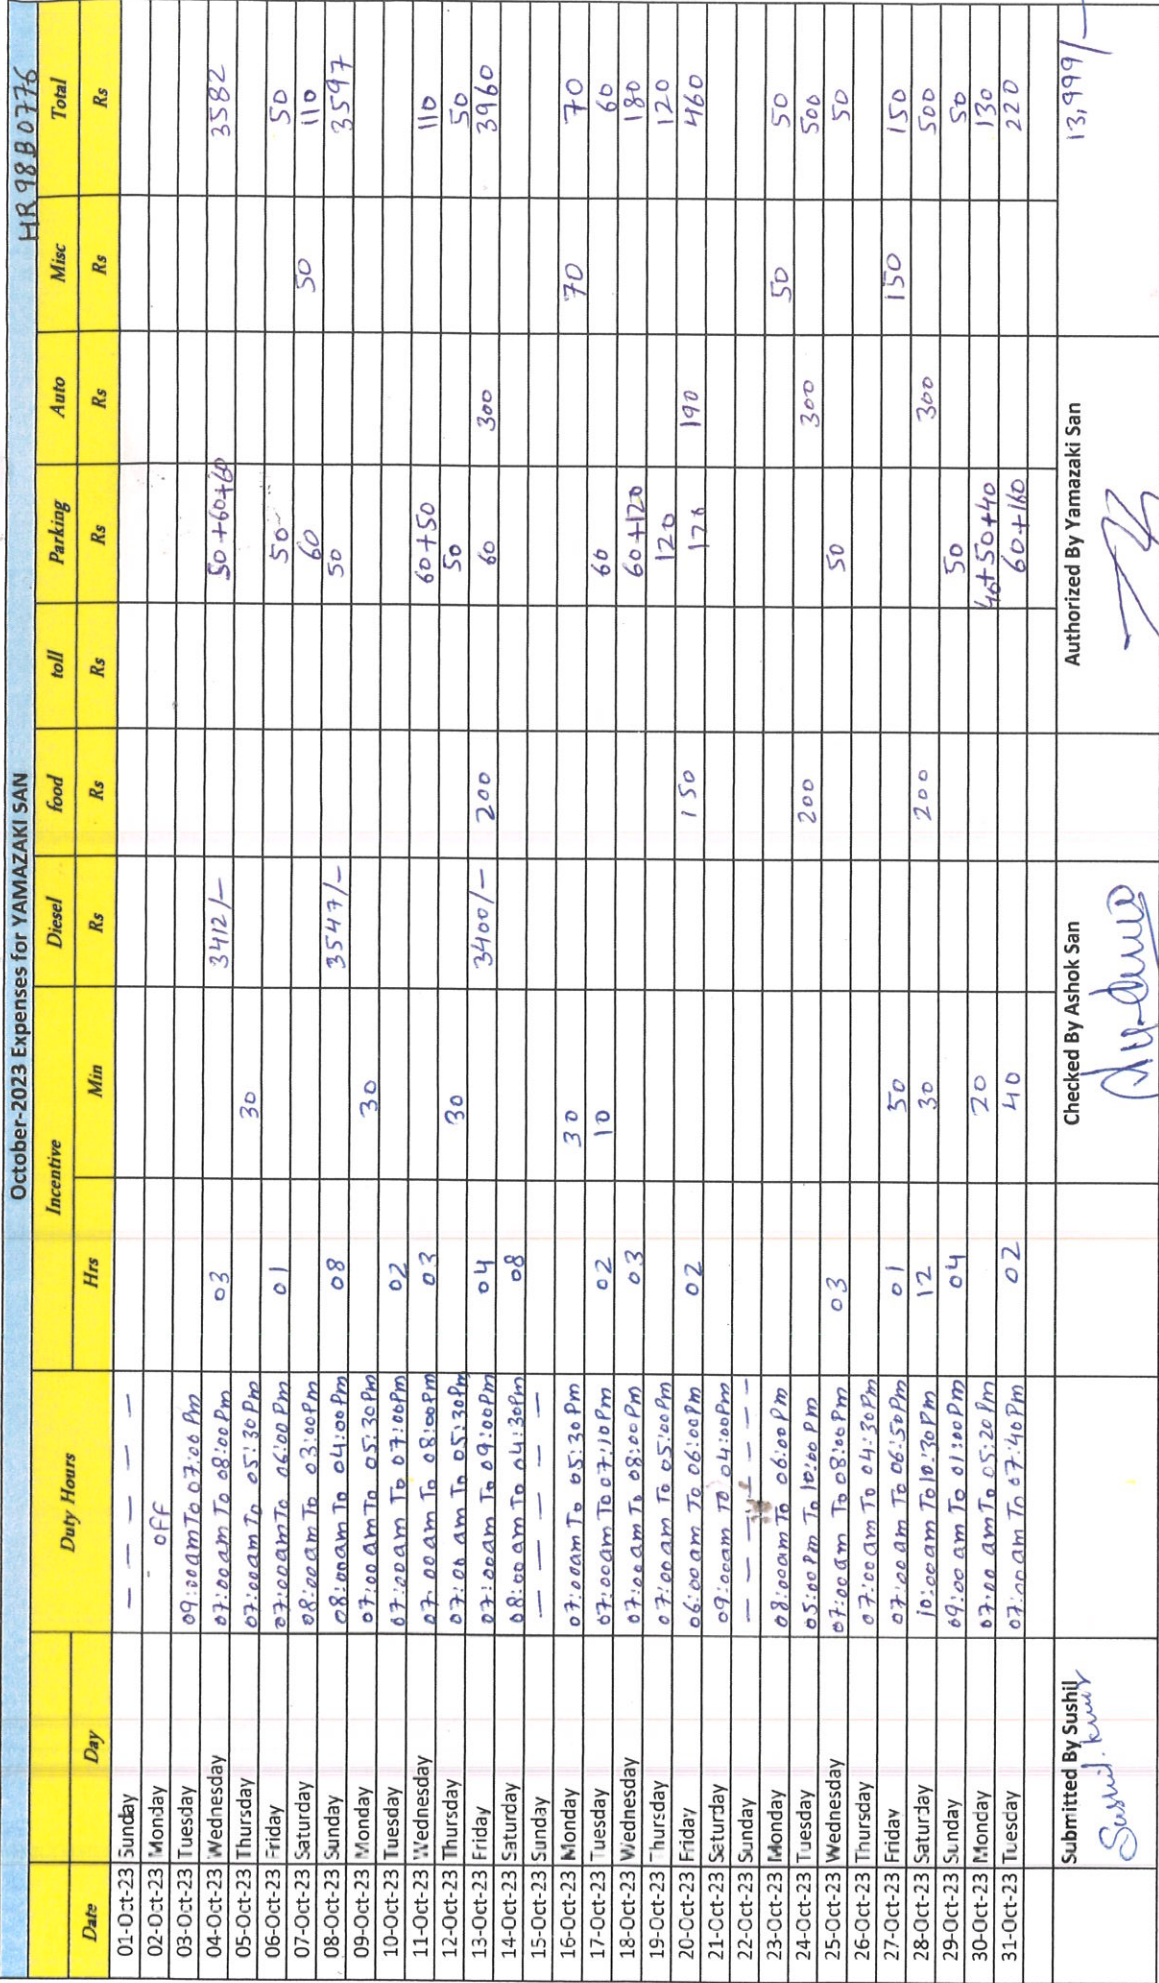 HR98B0776
October-2023 Expenses for YAMAZAKI SAN
Date Day Duty Hours Incentive Diesel food toll Parking Auto Misc Total
Hrs Min Rs Rs Rs Rs Rs Rs Rs
01-Oct-23 Sunday — — — — —
02-Oct-23 Monday off
03-Oct-23 Tuesday 09:00am To 07:00 Pm
04-Oct-23 Wednesday 07:00am To 08:00 Pm 03 3412/- 50+60+60 3582
05-Oct-23 Thursday 07:00am To 05:30 Pm 30
06-Oct-23 Friday 07:00am To 06:00 Pm 01 50 50
07-Oct-23 Saturday 08:00am To 03:00Pm 60 50 110
08-Oct-23 Sunday 08:00am To 04:00Pm 08 3547/- 50 3597
09-Oct-23 Monday 07:00am To 05:30Pm 30
10-Oct-23 Tuesday 07:00am To 07:00Pm 02
11-Oct-23 Wednesday 07:00am To 08:00Pm 03 60+50 110
12-Oct-23 Thursday 07:00 am To 05:30Pm 30 50 50
13-Oct-23 Friday 07:00am To 09:00Pm 04 3400/- 200 60 300 3960
14-Oct-23 Saturday 08:00am To 04:30Pm 08
15-Oct-23 Sunday — — — — —
16-Oct-23 Monday 07:00am To 05:30Pm 30 70 70
17-Oct-23 Tuesday 07:00am To 07:10Pm 02 10 60 60
18-Oct-23 Wednesday 07:00am To 08:00Pm 03 60+120 180
19-Oct-23 Thursday 07:00am To 05:00Pm 120 120
20-Oct-23 Friday 06:00am To 06:00Pm 02 150 190 460
21-Oct-23 Saturday 09:00am To 04:00Pm
22-Oct-23 Sunday — — — — —
23-Oct-23 Monday 08:00am To 06:00 Pm 50 50
24-Oct-23 Tuesday 05:00 Pm To 10:00 Pm 200 300 500
25-Oct-23 Wednesday 07:00am To 08:00Pm 03 50 50
26-Oct-23 Thursday 07:00am To 04:30Pm
27-Oct-23 Friday 07:00am To 06:50Pm 01 50 150 150
28-Oct-23 Saturday 10:00am To 10:30Pm 12 30 200 300 500
29-Oct-23 Sunday 09:00am To 01:00Pm 04 50 50
30-Oct-23 Monday 07:00 am To 05:20Pm 20 40+50+40 130
31-Oct-23 Tuesday 07:00am To 07:40Pm 02 40 60+160 220
Submitted By Sushil Checked By Ashok San Authorized By Yamazaki San 13,999/-
Sushil. kumar